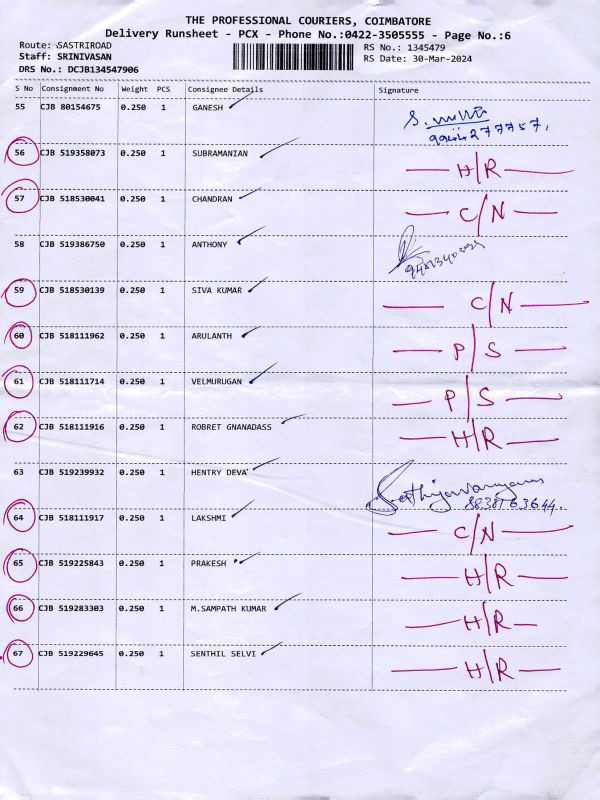 THE PROFESSIONAL COURIERS, COIMBATORE
Delivery Runsheet - PCX - Phone No.:0422-3505555 - Page No.:6
Route: SASTRIROAD
RS No.: 1345479
Staff: SRINIVASAN
RS Date: 30-Mar-2024
DRS No.: DCJB134547906
S No Consignment No Weight PCS Consignee Details Signature
55 CJB 80154675 0.250 1 GANESH
9944277757.
56 CJB 519358073 0.250 1 SUBRAMANIAN H/R
57 CJB 518530041 0.250 1 CHANDRAN C/N
58 CJB 519386750 0.250 1 ANTHONY
59 CJB 518530139 0.250 1 SIVA KUMAR C/N
60 CJB 518111962 0.250 1 ARULANTH P/S
61 CJB 518111714 0.250 1 VELMURUGAN P/S
62 CJB 518111916 0.250 1 ROBRET GNANADASS H/R
63 CJB 519239932 0.250 1 HENTRY DEVA
8838163644.
64 CJB 518111917 0.250 1 LAKSHMI C/N
65 CJB 519225843 0.250 1 PRAKESH H/R
66 CJB 519283303 0.250 1 M.SAMPATH KUMAR H/R
67 CJB 519229645 0.250 1 SENTHIL SELVI H/R